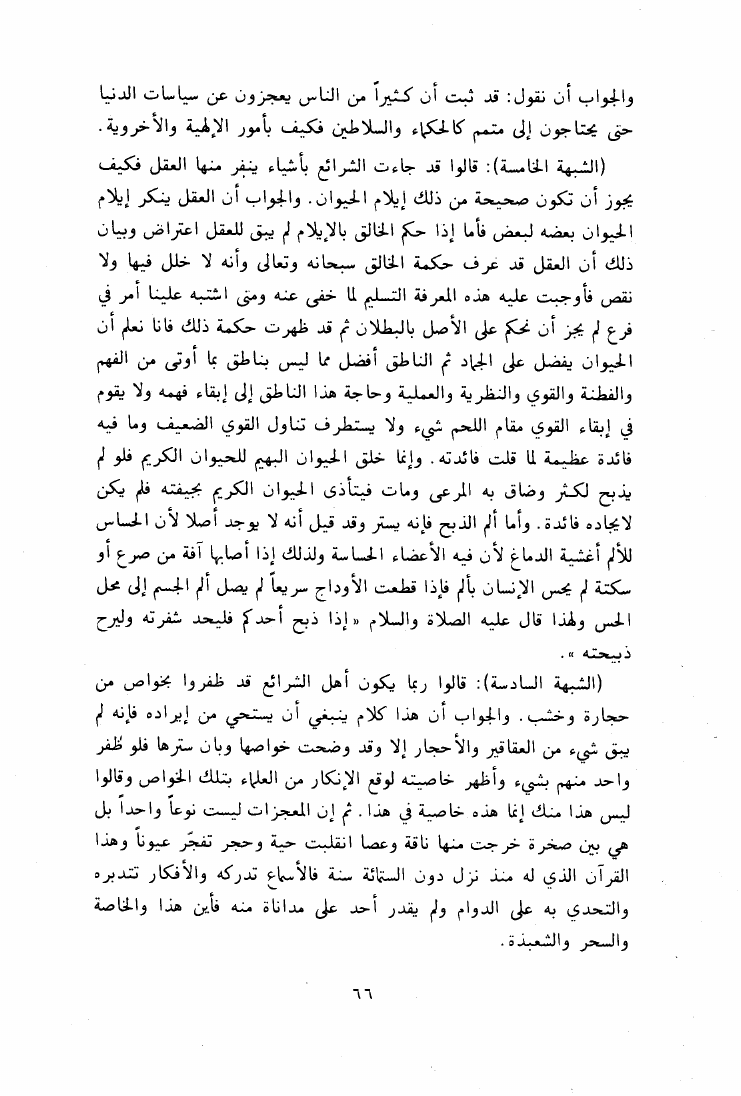 والجواب أن نقول: قد ثبت أن كثيراً من الناس يعجزون عن سياسات الدنيا
حتى يحتاجون إلى متمم كالحكماء والسلاطين فكيف بأمور الإلهية والأخروية.
(الشبهة الخامسة): قالوا قد جاءت الشرائع بأشياء ينفر منها العقل فكيف
يجوز أن تكون صحيحة من ذلك إيلام الحيوان. والجواب أن العقل ينكر إيلام
الحيوان بعضه لبعض فأما إذا حكم الخالق بالإيلام لم يبق للعقل اعتراض وبيان
ذلك أن العقل قد عرف حكمة الخالق سبحانه وتعالى وأنه لا خلل فيها ولا
نقص فأوجبت عليه هذه المعرفة التسليم لما خفى عنه ومتى اشتبه علينا أمر في
فرع لم يجز أن نحكم على الأصل بالبطلان ثم قد ظهرت حكمة ذلك فانا نعلم أن
الحيوان يفضل على الجماد ثم الناطق أفضل مما ليس بناطق بما أوتى من الفهم
والفطنة والقوي والنظرية والعملية وحاجة هذا الناطق إلى إبقاء فهمه ولا يقوم
في إبقاء القوي مقام اللحم شيء ولا يستطرف تناول القوي الضعيف وما فيه
فائدة عظيمة لما قلت فائدته. وإنما خلق الحيوان البهيم للحيوان الكريم فلو لم
يذبح لكثر وضاق به المرعى ومات فيتأذى الحيوان الكريم بجيفته فلم يكن
لايجاده فائدة. وأما ألم الذبح فإنه يستر وقد قيل أنه لا يوجد أصلا لأن الحساس
للألم أغشية الدماغ لأن فيه الأعضاء الحساسة ولذلك إذا أصابها آفة من صرع أو
سكتة لم يحس الإنسان بألم فإذا قطعت الأوداج سريعاً لم يصل ألم الجسم إلى محل
الحس ولهذا قال عليه الصلاة والسلام « إذا ذبح أحدكم فليحد شفرته وليرح
ذبيحته ».
(الشبهة السادسة): قالوا ربما يكون أهل الشرائع قد ظفروا بخواص من
حجارة وخشب. والجواب أن هذا كلام ينبغي أن يستحي من إيراده فإنه لم
يبق شيء من العقاقير والأحجار إلا وقد وضحت خواصها وبان سترها فلو ظُفر
واحد منهم بشيء وأظهر خاصيته لوقع الإنكار من العلماء بتلك الخواص وقالوا
ليس هذا منك إنما هذه خاصية في هذا. ثم إن المعجزات ليست نوعاً واحداً بل
هي بين صخرة خرجت منها ناقة وعصا انقلبت حية وحجر تفجّر عيوناً وهذا
القرآن الذي له منذ نزل دون الستمائة سنة فالأسماع تدركه والأفكار تتدبره
والتحدي به على الدوام ولم يقدر أحد على مداناة منه فأين هذا والخاصة
والسحر والشعبذة.
٦٦